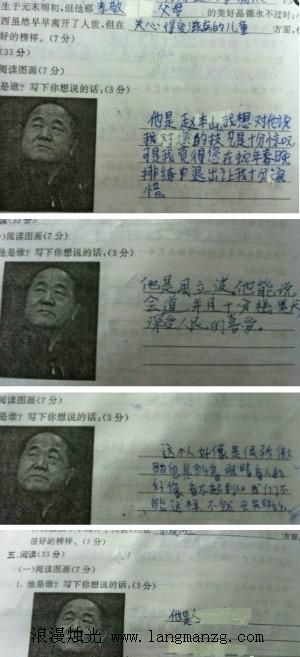 生于元末明初,但他那孝敬父母的美好品德永不过时;
西虽然早早离开了人世,但在关心得爱滋病的儿童方面,
好的榜样。(7分)
(33分)
阅读图画(7分)
是谁?写下你想说的话:(3分)
他是赵本山我想对他说
我对您的技艺十分惊叹
可是我觉得您在蛇年春晚
排练中退出让我十分惋
惜。
(33分)
)阅读图画(7分)
是谁?写下你想说的话:(3分)
他是周立波,他能说
会道,并且十分幽默,
深受人民的喜爱。
阅读图画(7分)
是谁?写下你想说的话:(3分)
这个人好像是很骄傲
眼睛看人的
好像看不起别人我们不
能这样,不然
很好的榜样。(7分)
方面
五、阅读(33分)
(一)阅读图画(7分)
1.他是谁?写下你想说的话:(3分)
他是
浪漫烛光 www.langmanzg.com